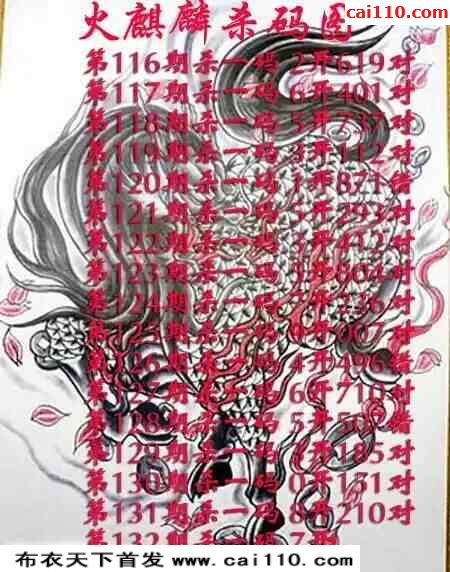 cai110.com
火麒麟杀码图
第116期杀一码 2开619对
第117期杀一码 6开401对
第118期杀一码 5开737对
第119期杀一码 3开112对
第120期杀一码 1开871错
第121期杀一码 5开293对
第122期杀一码 3开412对
第123期杀一码 开804对
第124期杀一码 开236对
第125期杀一码 开007对
第126期杀一码 4开496错
第127期杀一码 6开710对
第128期杀一码 5开 错
第129期杀一码 开185对
第130期杀一码 0开151对
第131期杀一码 8开210对
第132期杀一码 7开
布衣天下首发 www.cai110.com